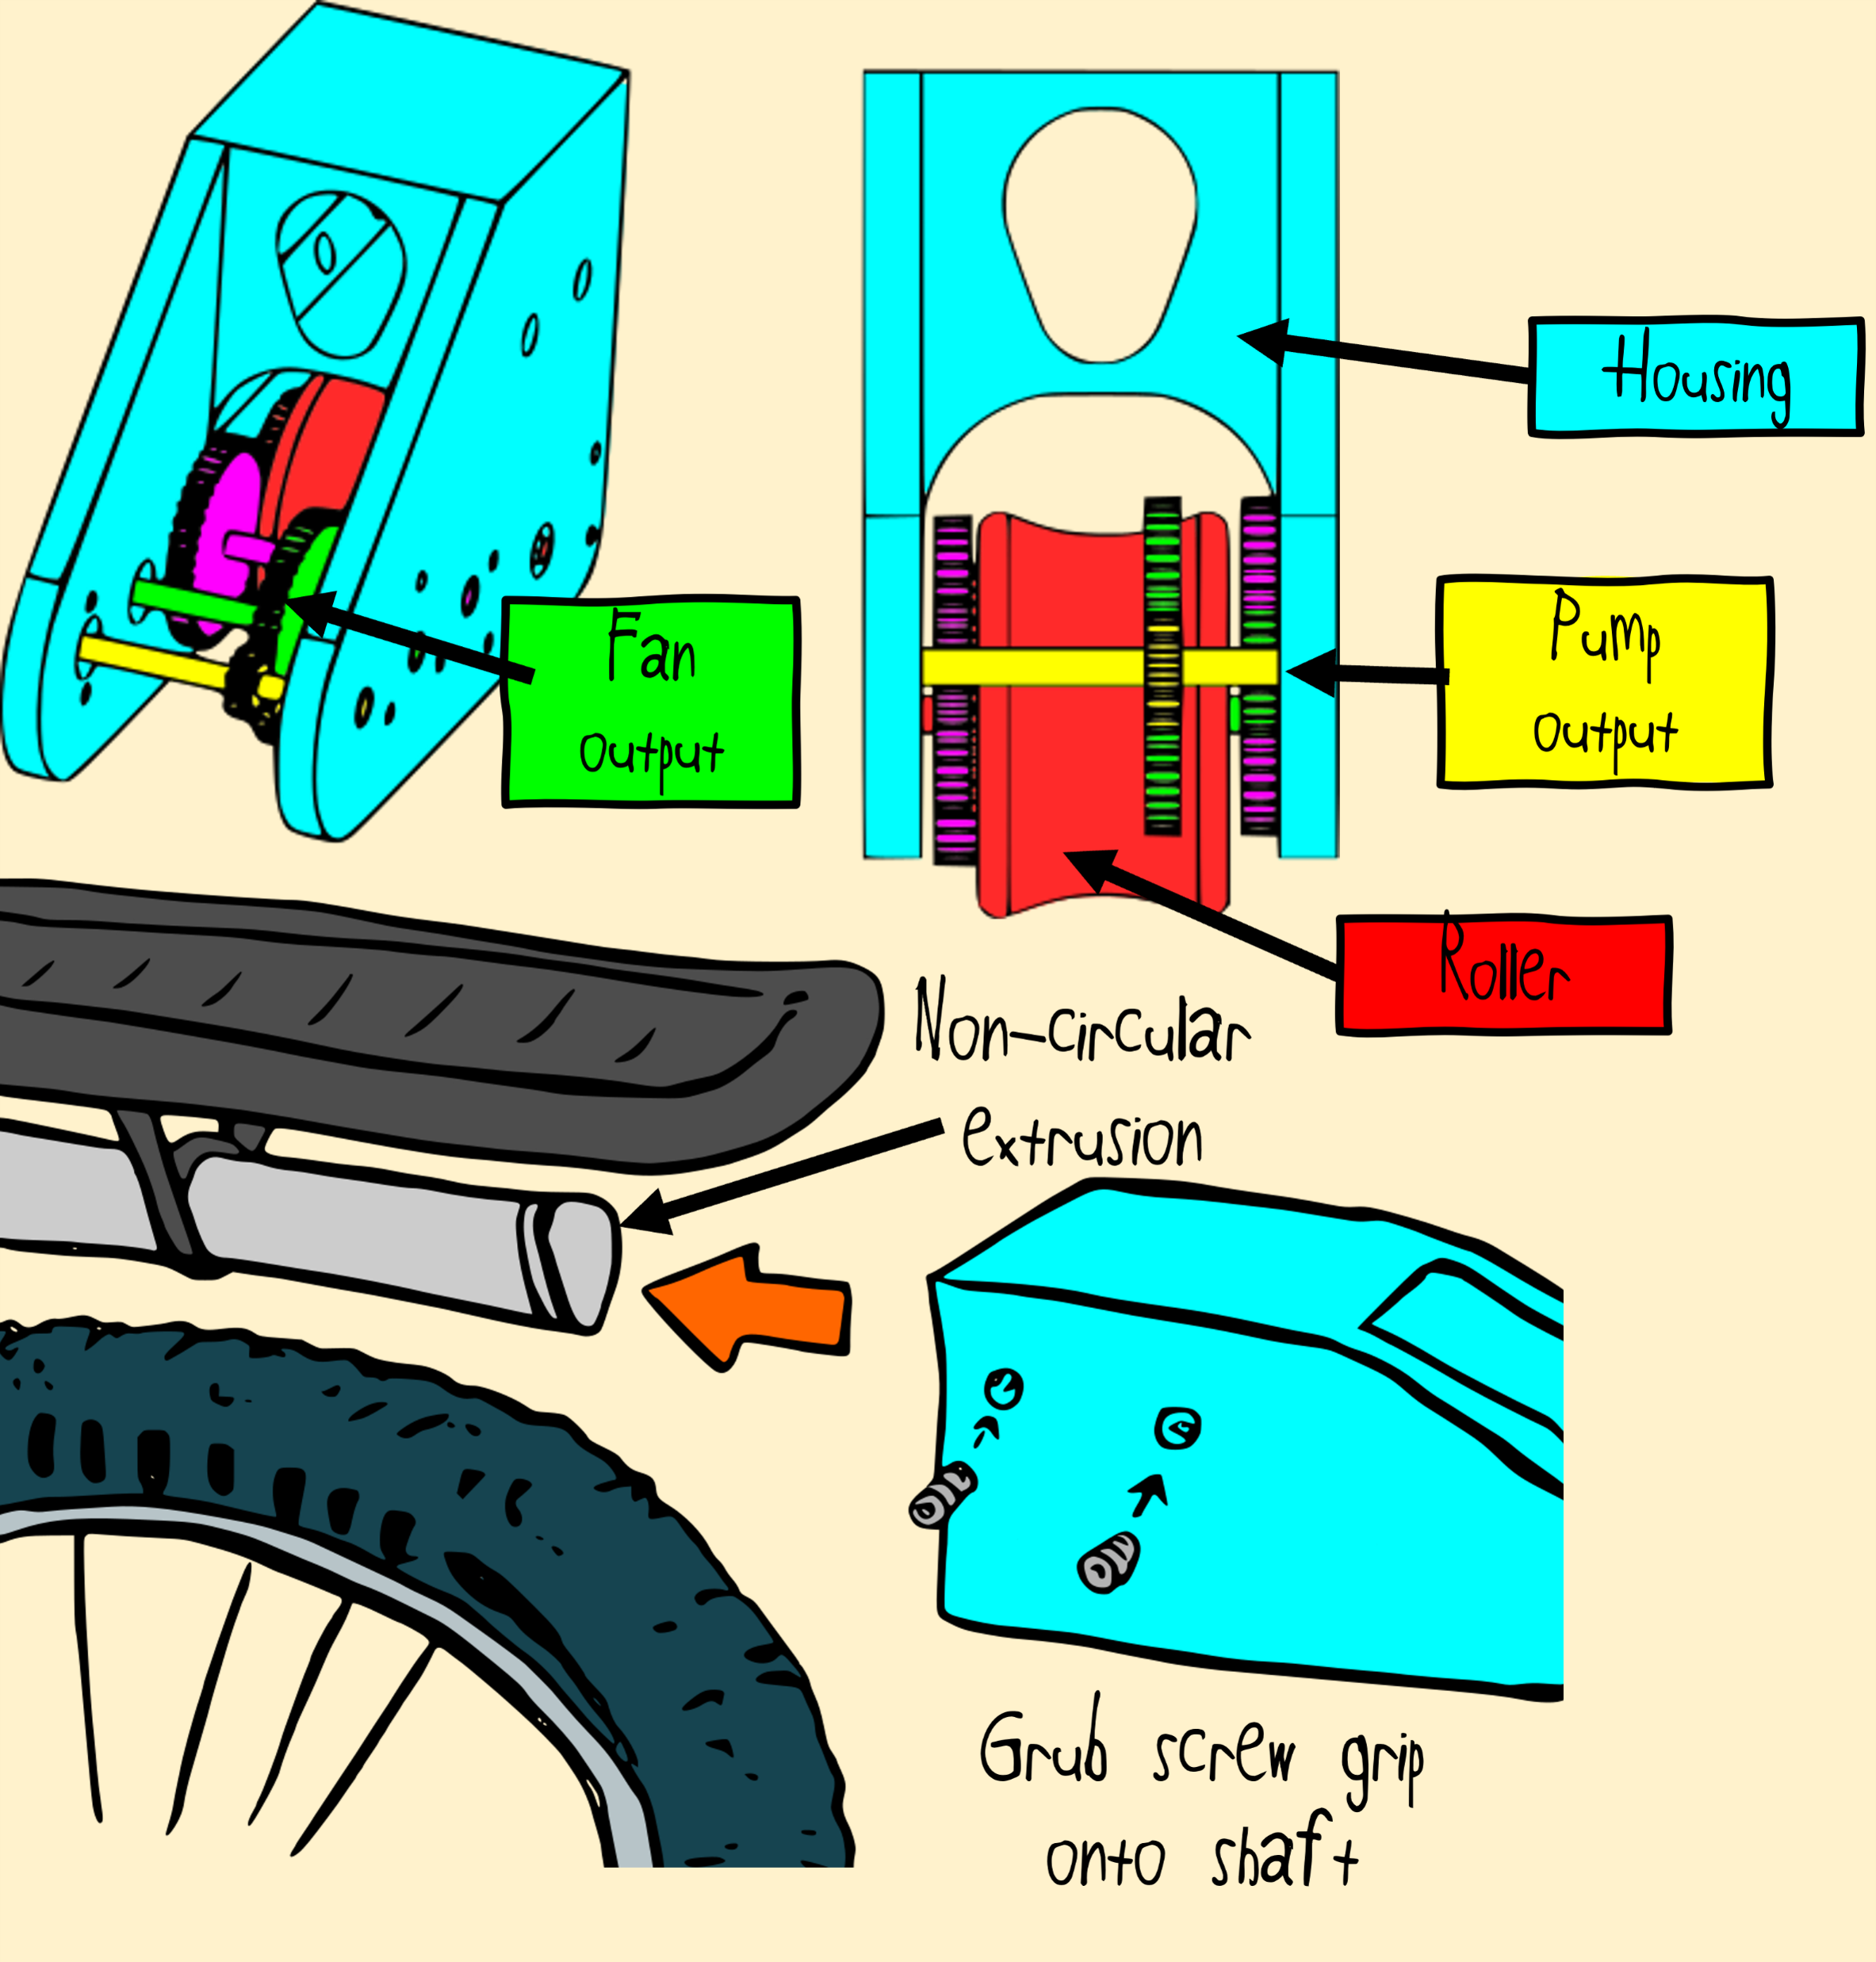 Housing
Fan
output
Pump
output
Roller
Non-circular
extrusion
Grub screw grip
onto shaft